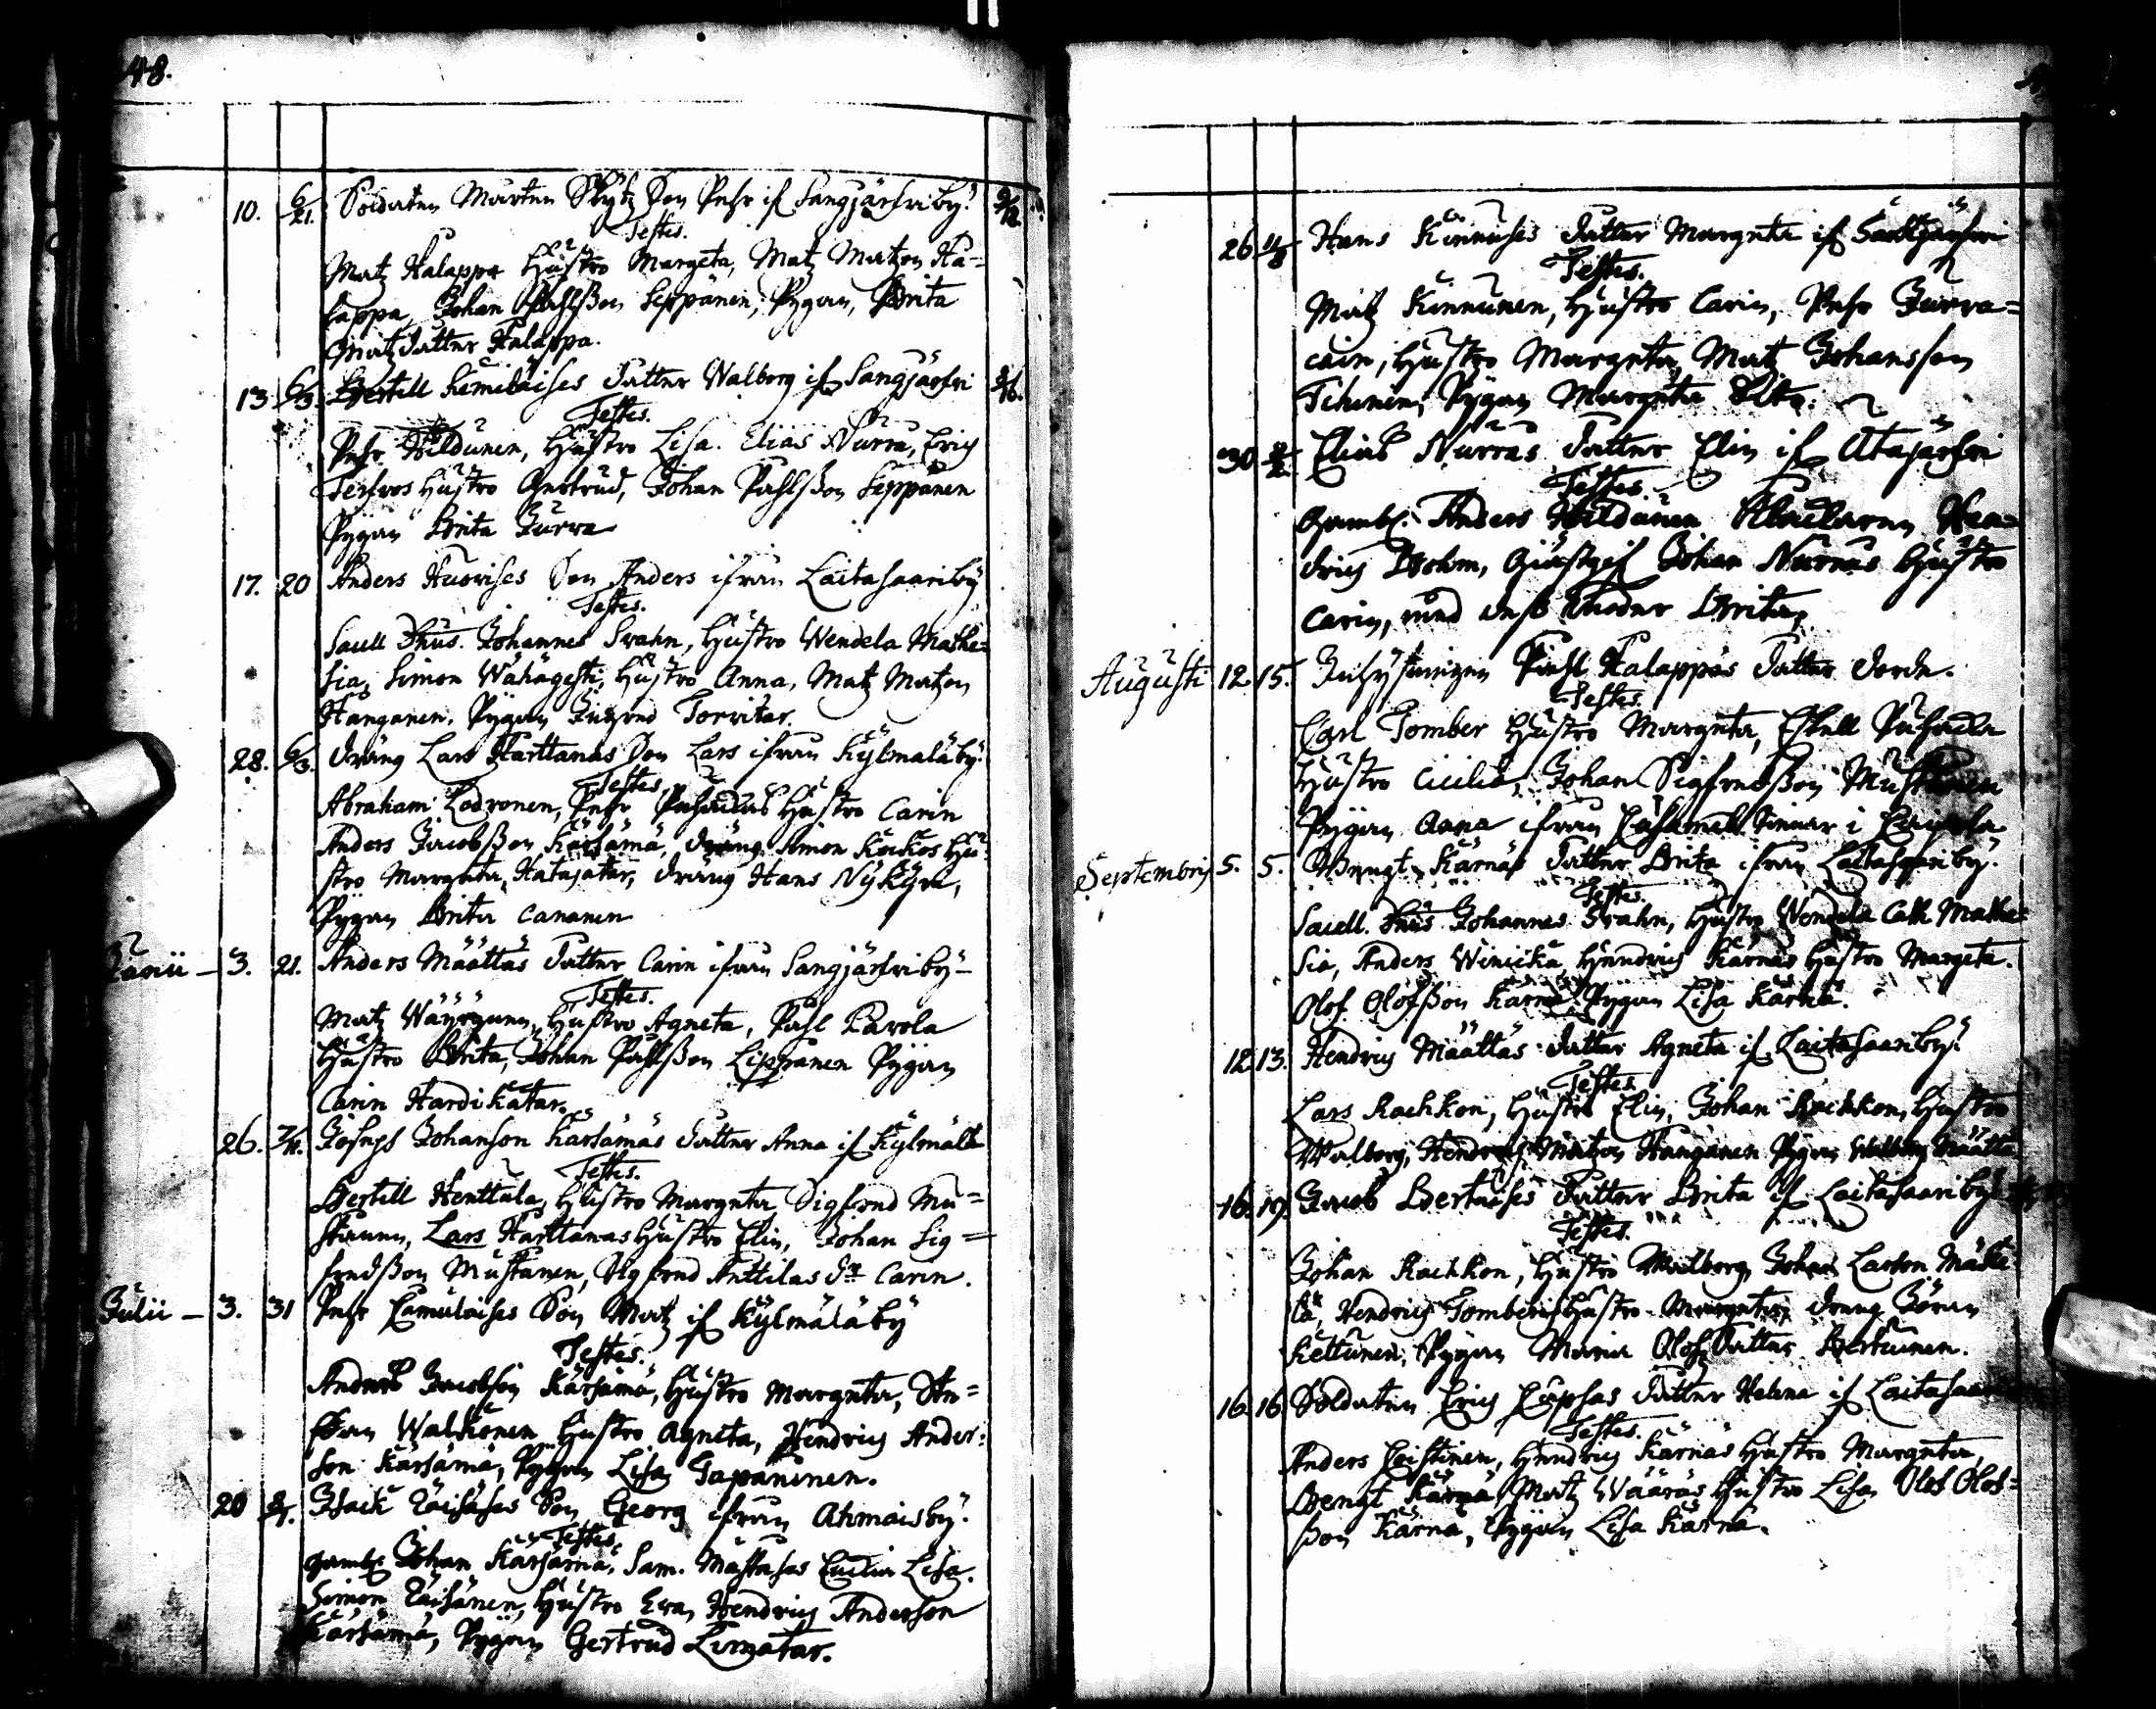 48.
10. 6/21. Soldaten Mårten Skytz Son Pehr if. Sangjärfwiby. 9/12.
Testes.
Matz Halappa Hustro Margeta, Matz Matzon Ha=
lappa, Johan Påhlßon Seppänen, Pygan, Brita
Matzdatter Halappa.
13 6/3. Bertell Kemiläises datter Walborg if Sangjärfwi
Testes.
Pehr Hildunen, Hustro Lisa. Elias Nurra, Erich
Terfwos Hustro Gertrud, Johan Påhlßon Seppänen
Pygan Brita Jurva
17. 20 Anders Huovises Son Anders ifrån Laitasaariby
Testes.
Sacell Dnus. Johannes Svahn, Hustro Wendela Mathe=
sia, Simon Wähägesti, Hustro Anna, Matz Matzon
Hanganen. Pygan Ingred Torvitar.
28. 6/3. dräng Lars Harttanas Son Lars ifrån Kylmäläby.
Testes,
Abraham Lodronen, Pehr Hustro Carin
Anders Jacobßon Kärsämä, dräng Simon Kockos Hu=
stro Margeta, Katajatar, dräng Hans Nykyri,
Pygan Brita Cananen
Junii – 3. 21. Anders Määttäs datter Carin ifrån Sangjärfwiby –
Testes.
Matz Wäyrynen, Hustro Agneta, Påhl Karola
Hustro Brita, Johan Påhlßon Lippanen Pygan
Carin Hardikatar.
26. 7/11. Joseph Johanson Kärsämäs datter Anna if Kylmälä
Testes.
Bertill Henttula, Hustro Margeta, Sigfred Mu=
stanen, Lars Harttanas Hustro Elin, Johan Sig=
fredßon Mustanen, Sigfred Anttilas dr. Carin.
Julii – 3. 31 Pehr Kemuläises Son Matz if Kylmäläby
Testes.
Anders Jacobson Kärsämä, Hustro Margeta, Ste=
fan Walkonen Hustro Agneta, Hendrich Ander=
son Kärsämä, Pygan Lisa Tapaninen.
20 8/1. Isack Räisäses Son Georg ifrån Ahmaisby.
Testes,
gamb. Johan Kärsämä, Sam. Mastases Lisa.
Simon Räisänen, Hustro Eva, Hendrich Anderson
Kärsämä, Pygan Gertrud Lumatar.
26 11/8 Hans Kinnuses datter Margeta if
Testes.
Matz Kinnunen, Hustro Carin, Pehr Jurva=
cain, Hustro Margeta, Matz Johansson
Tihinen, Pygan Margeta
30 Elias Nurras datter Elin if Utajärfwi
Testes.
gambl. Anders Hildunen Klockaren Hen=
drich Bohm, Giästgif Johan Nurras Hustro
Carin, med deß Moder Brita,
Augusti 12. 15. Inhysingen Påhl Halappas datter dorde.
Testes.
Carl Tomber Hustro Margeta, Eskell Påhacka
Hustro Cicilia, Johan Sigfredßon Mustanen
Pygan Anna ifrån
Septembris 5. 5. Bengt Kärnäs datter Brita ifrån Laitasaariby.
Testes.
Sacell. Dnus Johannes Svahn, Hustro Wendela Cath Mathe=
sia, Anders Winicka, Hendrich Kärnäs Hustro Margeta.
Olof Olofßon Kärnä Pygan Lisa Kärnä.
12. 13. Hendrich Määttäs datter Agneta if Laitasaariby.
Testes
Lars Rachkon, Hustro Elin, Johan Rachkon, Hustro
Walborg, Hendrich Matzon Hanganen Pygan Walborg Määttä
16. 19. Jacob Bertuises datter Brita if Laitasaariby
Testes.
Johan Rachkon, Hustro Walborg, Johan Larson Mäke=
lä, Hendrich Tomberis Hustro Margeta, dräng Göran
Kettunen, Pygan Maria Olofsdatter Bertuinen.
16. 16. Soldaten Erich datter Helena if Laitasaar
Testes.
Anders Leistinen, Hendrich Kärnäs Hustro Margeta,
Bengt Kärnä Matz Wääräs Hustro Lisa Olof Olof=
ßon Kärnä, Pygan Lisa Kärnä.